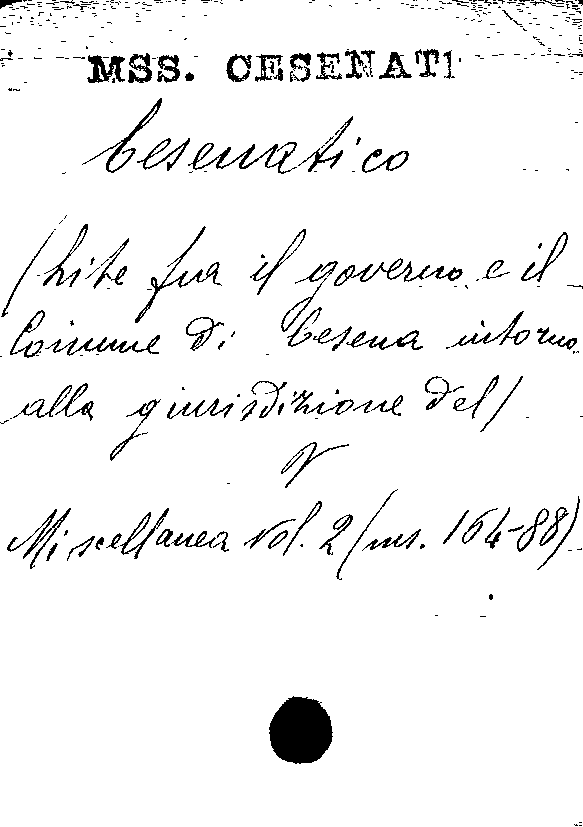 MSS. CESENATI
Cesenatico
(Lite fra il governo e il
Comune di Cesena intorno
alla giurisdizione del)
V
Miscellanea vol. 2 (ms. 164-88)